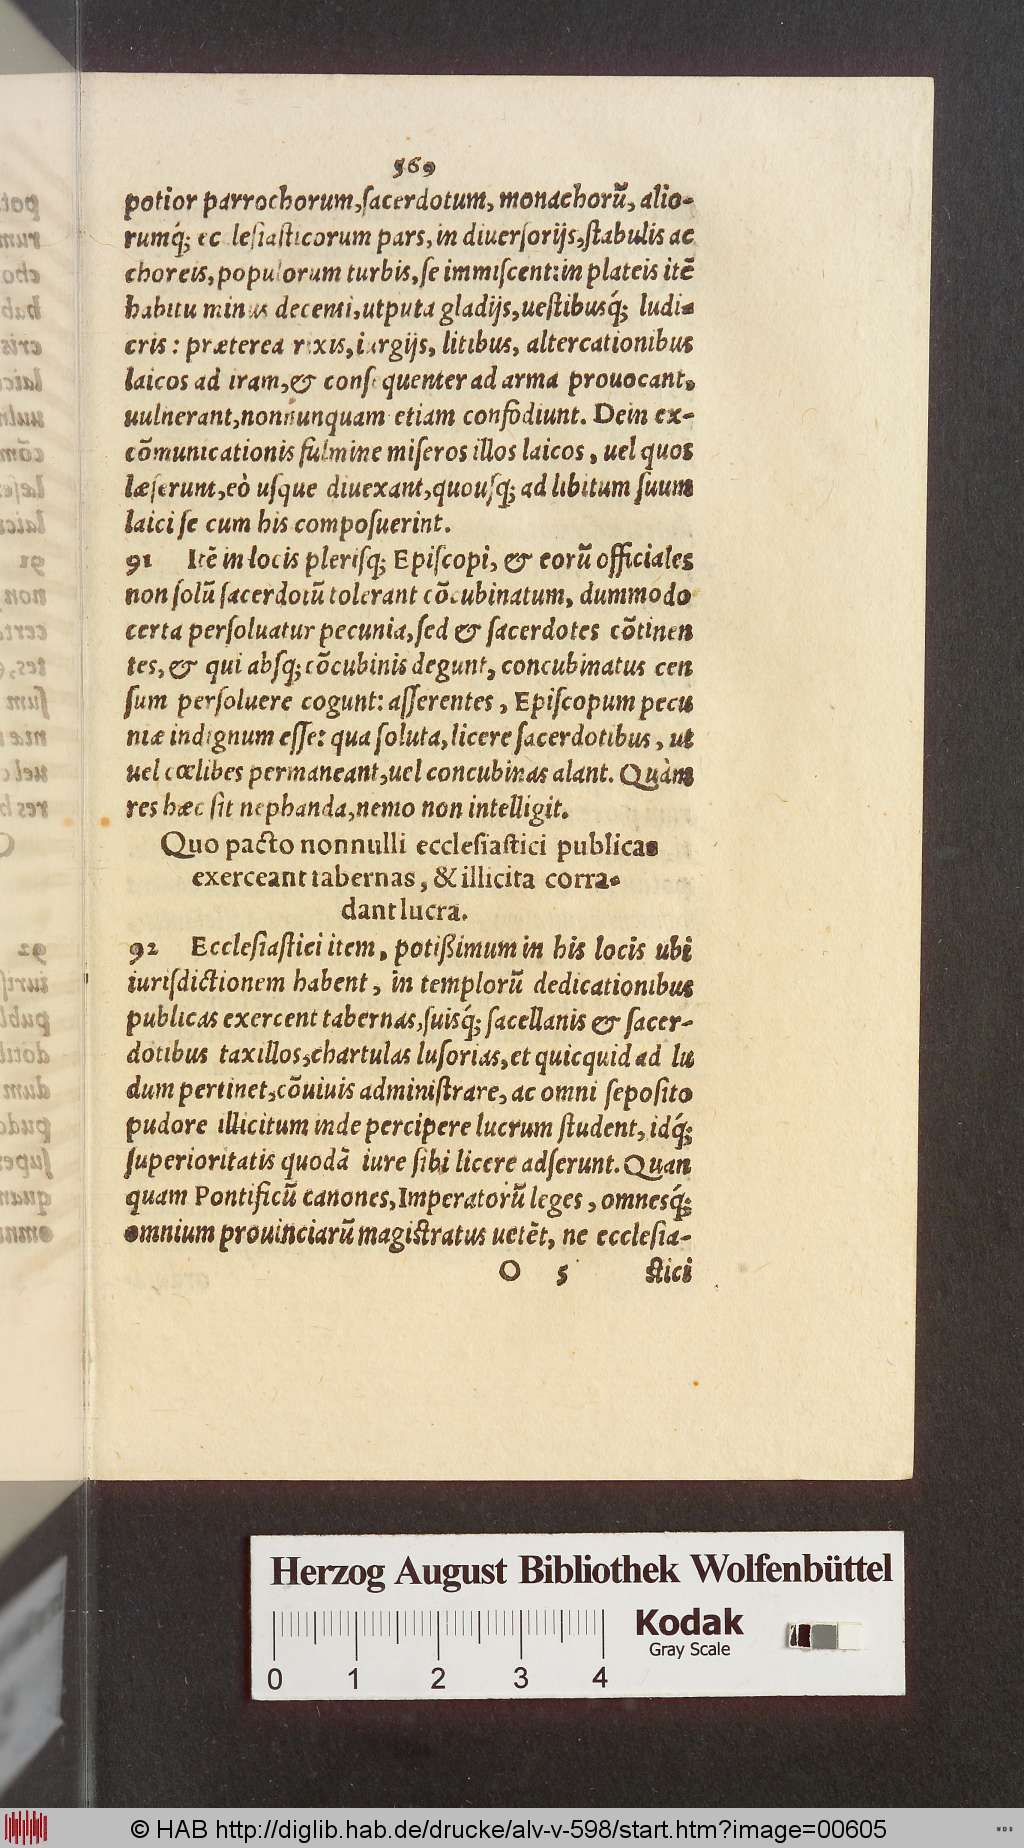 569
potior parrochorum, ſacerdotum, monachorũ, alio-
rumq́; eccleſiaſticorum pars, in diuerſorijs, ſtabulis ac
choreis, populorum turbis, ſe immiſcent: in plateis itẽ
habitu minus decenti, utputa gladijs, ueſtibusq́; ludi-
cris: præterea rixis, iurgijs, litibus, altercationibus
laicos ad iram, & conſequenter ad arma prouocant,
uulnerant, nonnunquam etiam confodiunt. Dein ex-
cõmunicationis fulmine miſeros illos laicos, uel quos
læſerunt, eò uſque diuexant, quouſq; ad libitum ſuum
laici ſe cum his compoſuerint.
91 Itẽ in locis pleriſq; Epiſcopi, & eorũ officiales
non ſolũ ſacerdotũ tolerant cõcubinatum, dummodo
certa perſoluatur pecunia, ſed & ſacerdotes cõtinen
tes, & qui abſq; cõcubinis degunt, concubinatus cen
ſum perſoluere cogunt: aſſerentes, Epiſcopum pecu
niæ indignum eſſe: qua ſoluta, licere ſacerdotibus, ut
uel cœlibes permaneant, uel concubinas alant. Quàm
res hæc ſit nephanda, nemo non intelligit.
Quo pacto nonnulli eccleſiaſtici publicas
exerceant tabernas, & illicita corra-
dant lucra.
92 Eccleſiaſtici item, potißimum in his locis ubi
iuriſdictionem habent, in templorũ dedicationibus
publicas exercent tabernas, ſuisq́; ſacellanis & ſacer-
dotibus taxillos, chartulas luſorias, et quicquid ad lu
dum pertinet, cõuiuis adminiſtrare, ac omni ſepoſito
pudore illicitum inde percipere lucrum ſtudent, idq́;
ſuperioritatis quodã iure ſibi licere adſerunt. Quan
quam Pontificũ canones, Imperatorũ leges, omnesq́;
omnium prouinciarũ magiſtratus uetẽt, ne eccleſia-
O 5 ſtici
Herzog August Bibliothek Wolfenbüttel
Kodak
Gray Scale
0 1 2 3 4
© HAB http://diglib.hab.de/drucke/alv-v-598/start.htm?image=00605